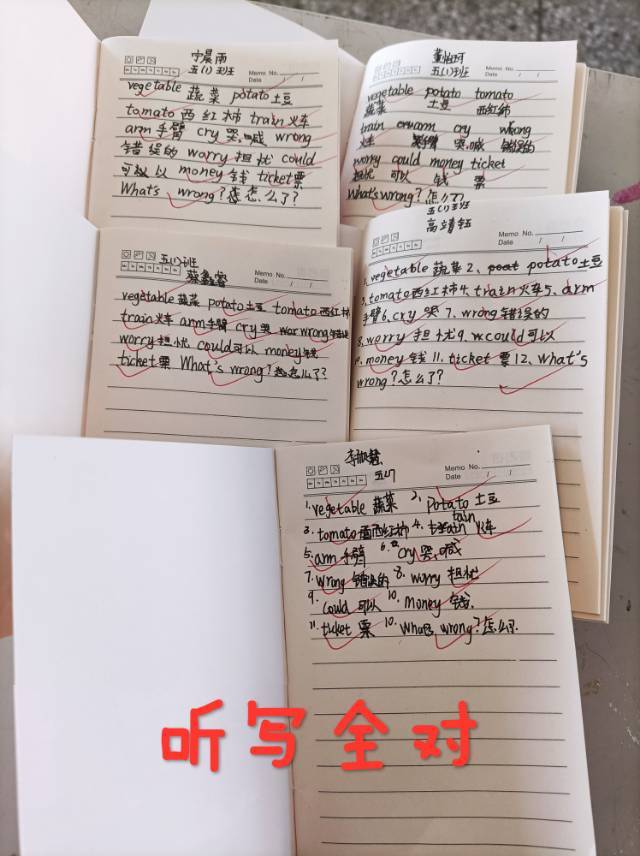 宁晨雨
五(1)班
Memo No.
Date / /
vegetable 蔬菜 potato土豆
tomato 西红柿 train火车
arm手臂 cry哭,喊 wrong
错误的 worry担忧 could
可以 money钱 ticket票
What's wrong?怎么了?
五(1)班
Memo No.
Date / /
vegetable potato tomato
蔬菜 土豆 西红柿
train arm cry wrong
火车 手臂 哭,喊 错误的
worry could money ticket
担忧 可以 钱 票
What's wrong?怎么了?
五(1)班
Memo No.
Date / /
vegetable蔬菜 potato土豆 tomato西红柿
train火车 arm手臂 cry哭 wor wrong错误
worry担忧 could可以 money钱
ticket票 What's wrong?怎么了?
五(1)班
高靖钰
Memo No.
Date / /
1、vegetable蔬菜 2、poat potato土豆
3、tomato西红柿4、train火车5、arm
手臂6、cry哭 7、wrong错误的
8、worry担忧9、could可以
10、money钱 11、ticket票12、What's
wrong?怎么了?
五(1)
Memo No.
Date / /
1.vegetable 蔬菜 2.potato 土豆
tain
3.tomato 西红柿 4.火车
5.arm手臂 6.cry哭,喊
7.wrong错误的 8.worry担忧
9.could可以 10.money钱
11.ticket票 10.What's wrong?怎么了
听写全对